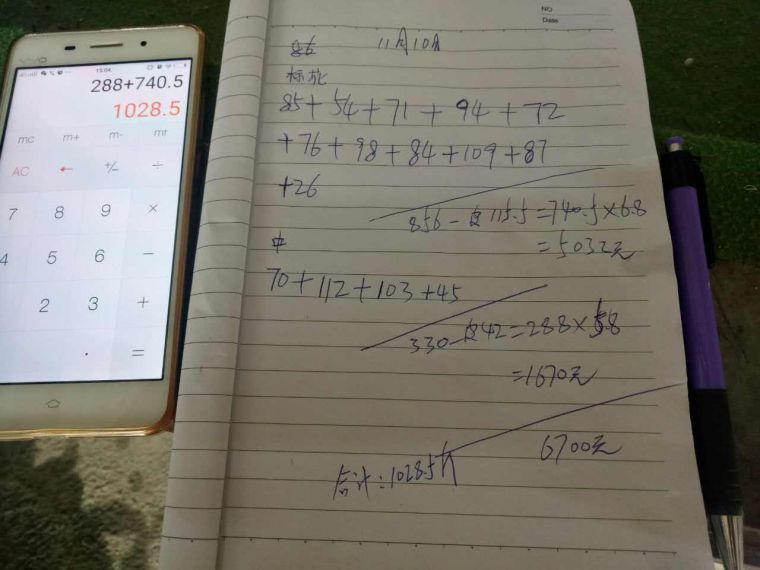 vivo
15:04
288+740.5
1028.5
mc m+ m- mr
AC ← +/- ÷
7 8 9 ×
4 5 6 −
2 3 +
. =
NO
Date
11月10日
标
85+54+71+94+72
+76+98+84+109+87
+26
856- 115.5=740.5×6.8
=5032元
中
70+112+103+45
330- 42=288×5.8
=1670元
6700元
合计:1028.5斤